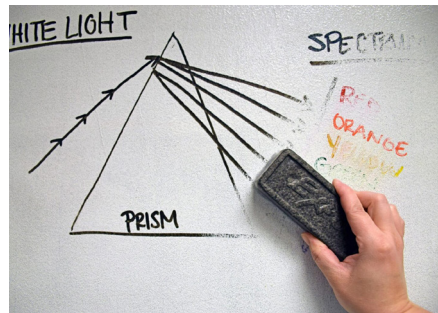 WHITE LIGHT
SPECTRUM
RED
ORANGE
YELLOW
PRISM